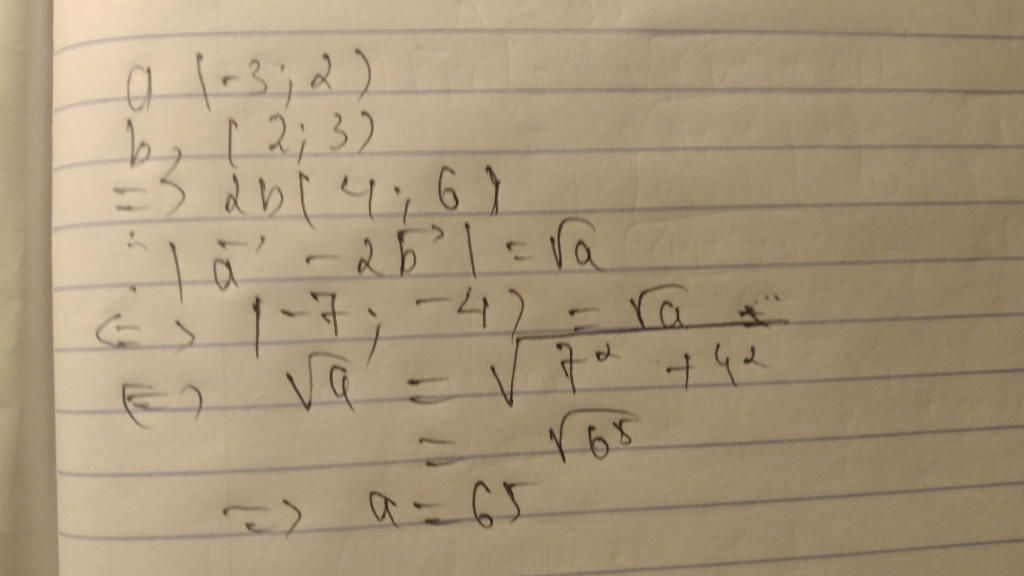 a (-3; 2)
b, (2; 3)
=> 2b(4; 6)
: |a⃗ - 2b⃗| = √a
<=> (-7; -4) = √a
<=> √a = √7² + 4²
= √65
=> a = 65